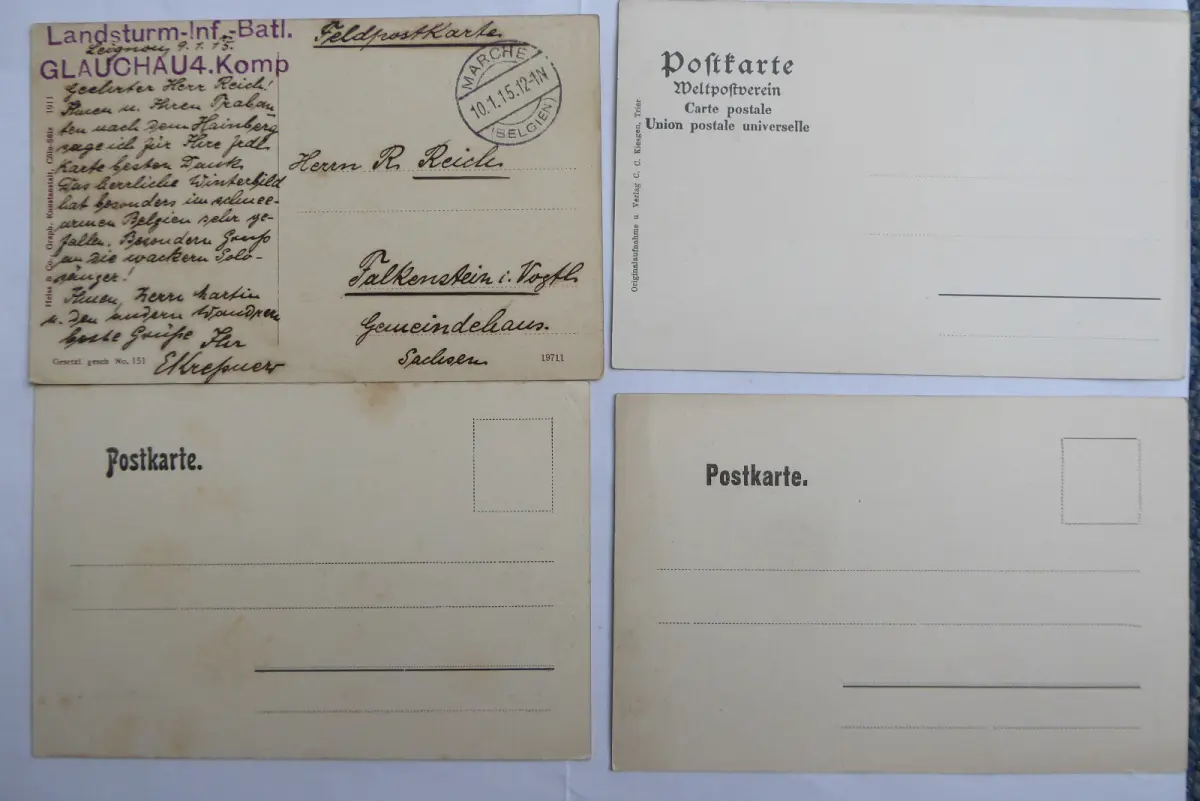 Landsturm-Inf.-Batl.
GLAUCHAU 4. Komp
Leignon, 9.1.15.
Geehrter Herr Reich!
Ihnen u. Ihren Traban-
ten nach dem Hainberg
sage ich für Ihre frdl.
Karte besten Dank.
Das herrliche Winterbild
hat besonders im schnee-
armen Belgien sehr ge-
fallen. Besondern Gruß
an die wackern Solo-
sänger!
Ihnen, Herrn Martin
u. den andern Wandrern
beste Grüße Ihr
Heiss & Co. Graph. Kunstanstalt, Cöln-Sülz 1911
Gesetzl. gesch No. 151
Feldpostkarte
MARCHE
10.1.15.12-1N
(BELGIEN)
Herrn R. Reich
Falkenstein i. Vogtl.
Gemeindehaus.
Sachsen
19711
Poſtkarte
Weltpoſtverein
Carte postale
Union postale universelle
Originalaufnahme u. Verlag C. C. Kiesgen, Trier
Postkarte.
Postkarte.